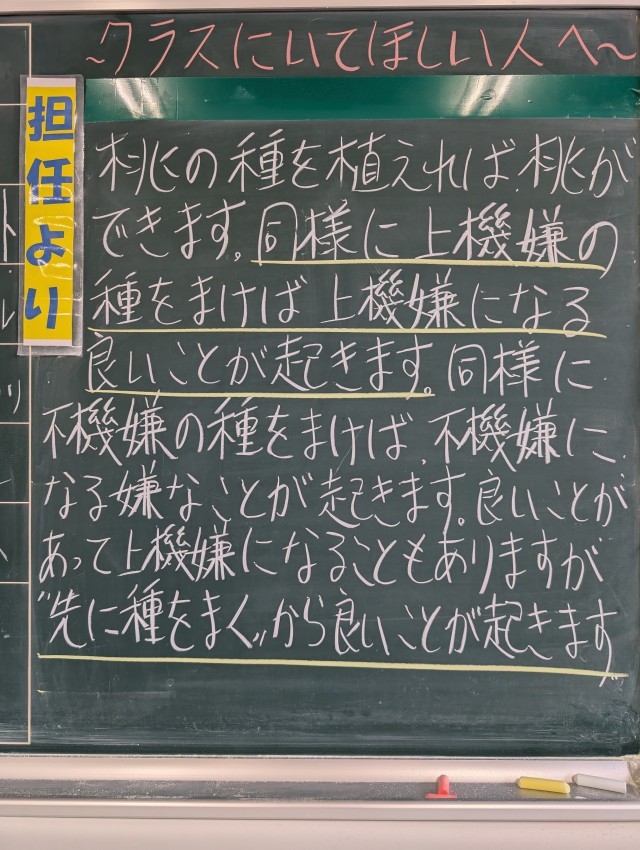 ~クラスにいてほしい人へ~
担任より
桃の種を植えれば、桃が
できます。同様に上機嫌の
種をまけば上機嫌になる
良いことが起きます。同様に
不機嫌の種をまけば、不機嫌に
なる嫌なことが起きます。良いことが
あって上機嫌になることもありますが
"先に種をまく"から良いことが起きます